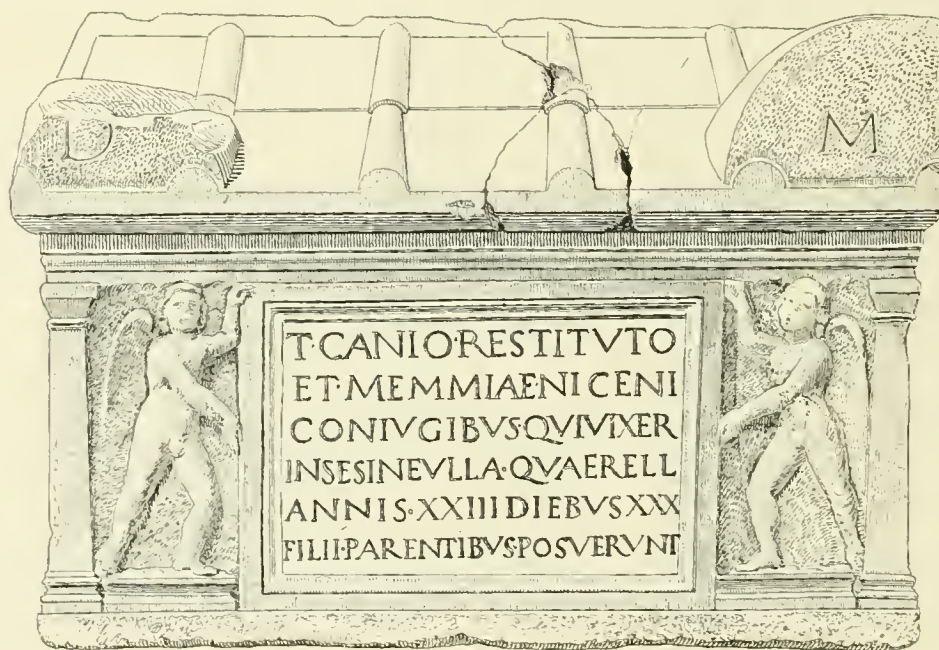 D M
T·CANIO·RESTITVTO
ET·MEMMIAE·NICENI
CONIVGIBVSQVIVIXER
INSESINEVLLA·QVAERELL
ANNIS·XXIIIDIEBVSXXX
FILII·PARENTIBVS·POSVERVNT